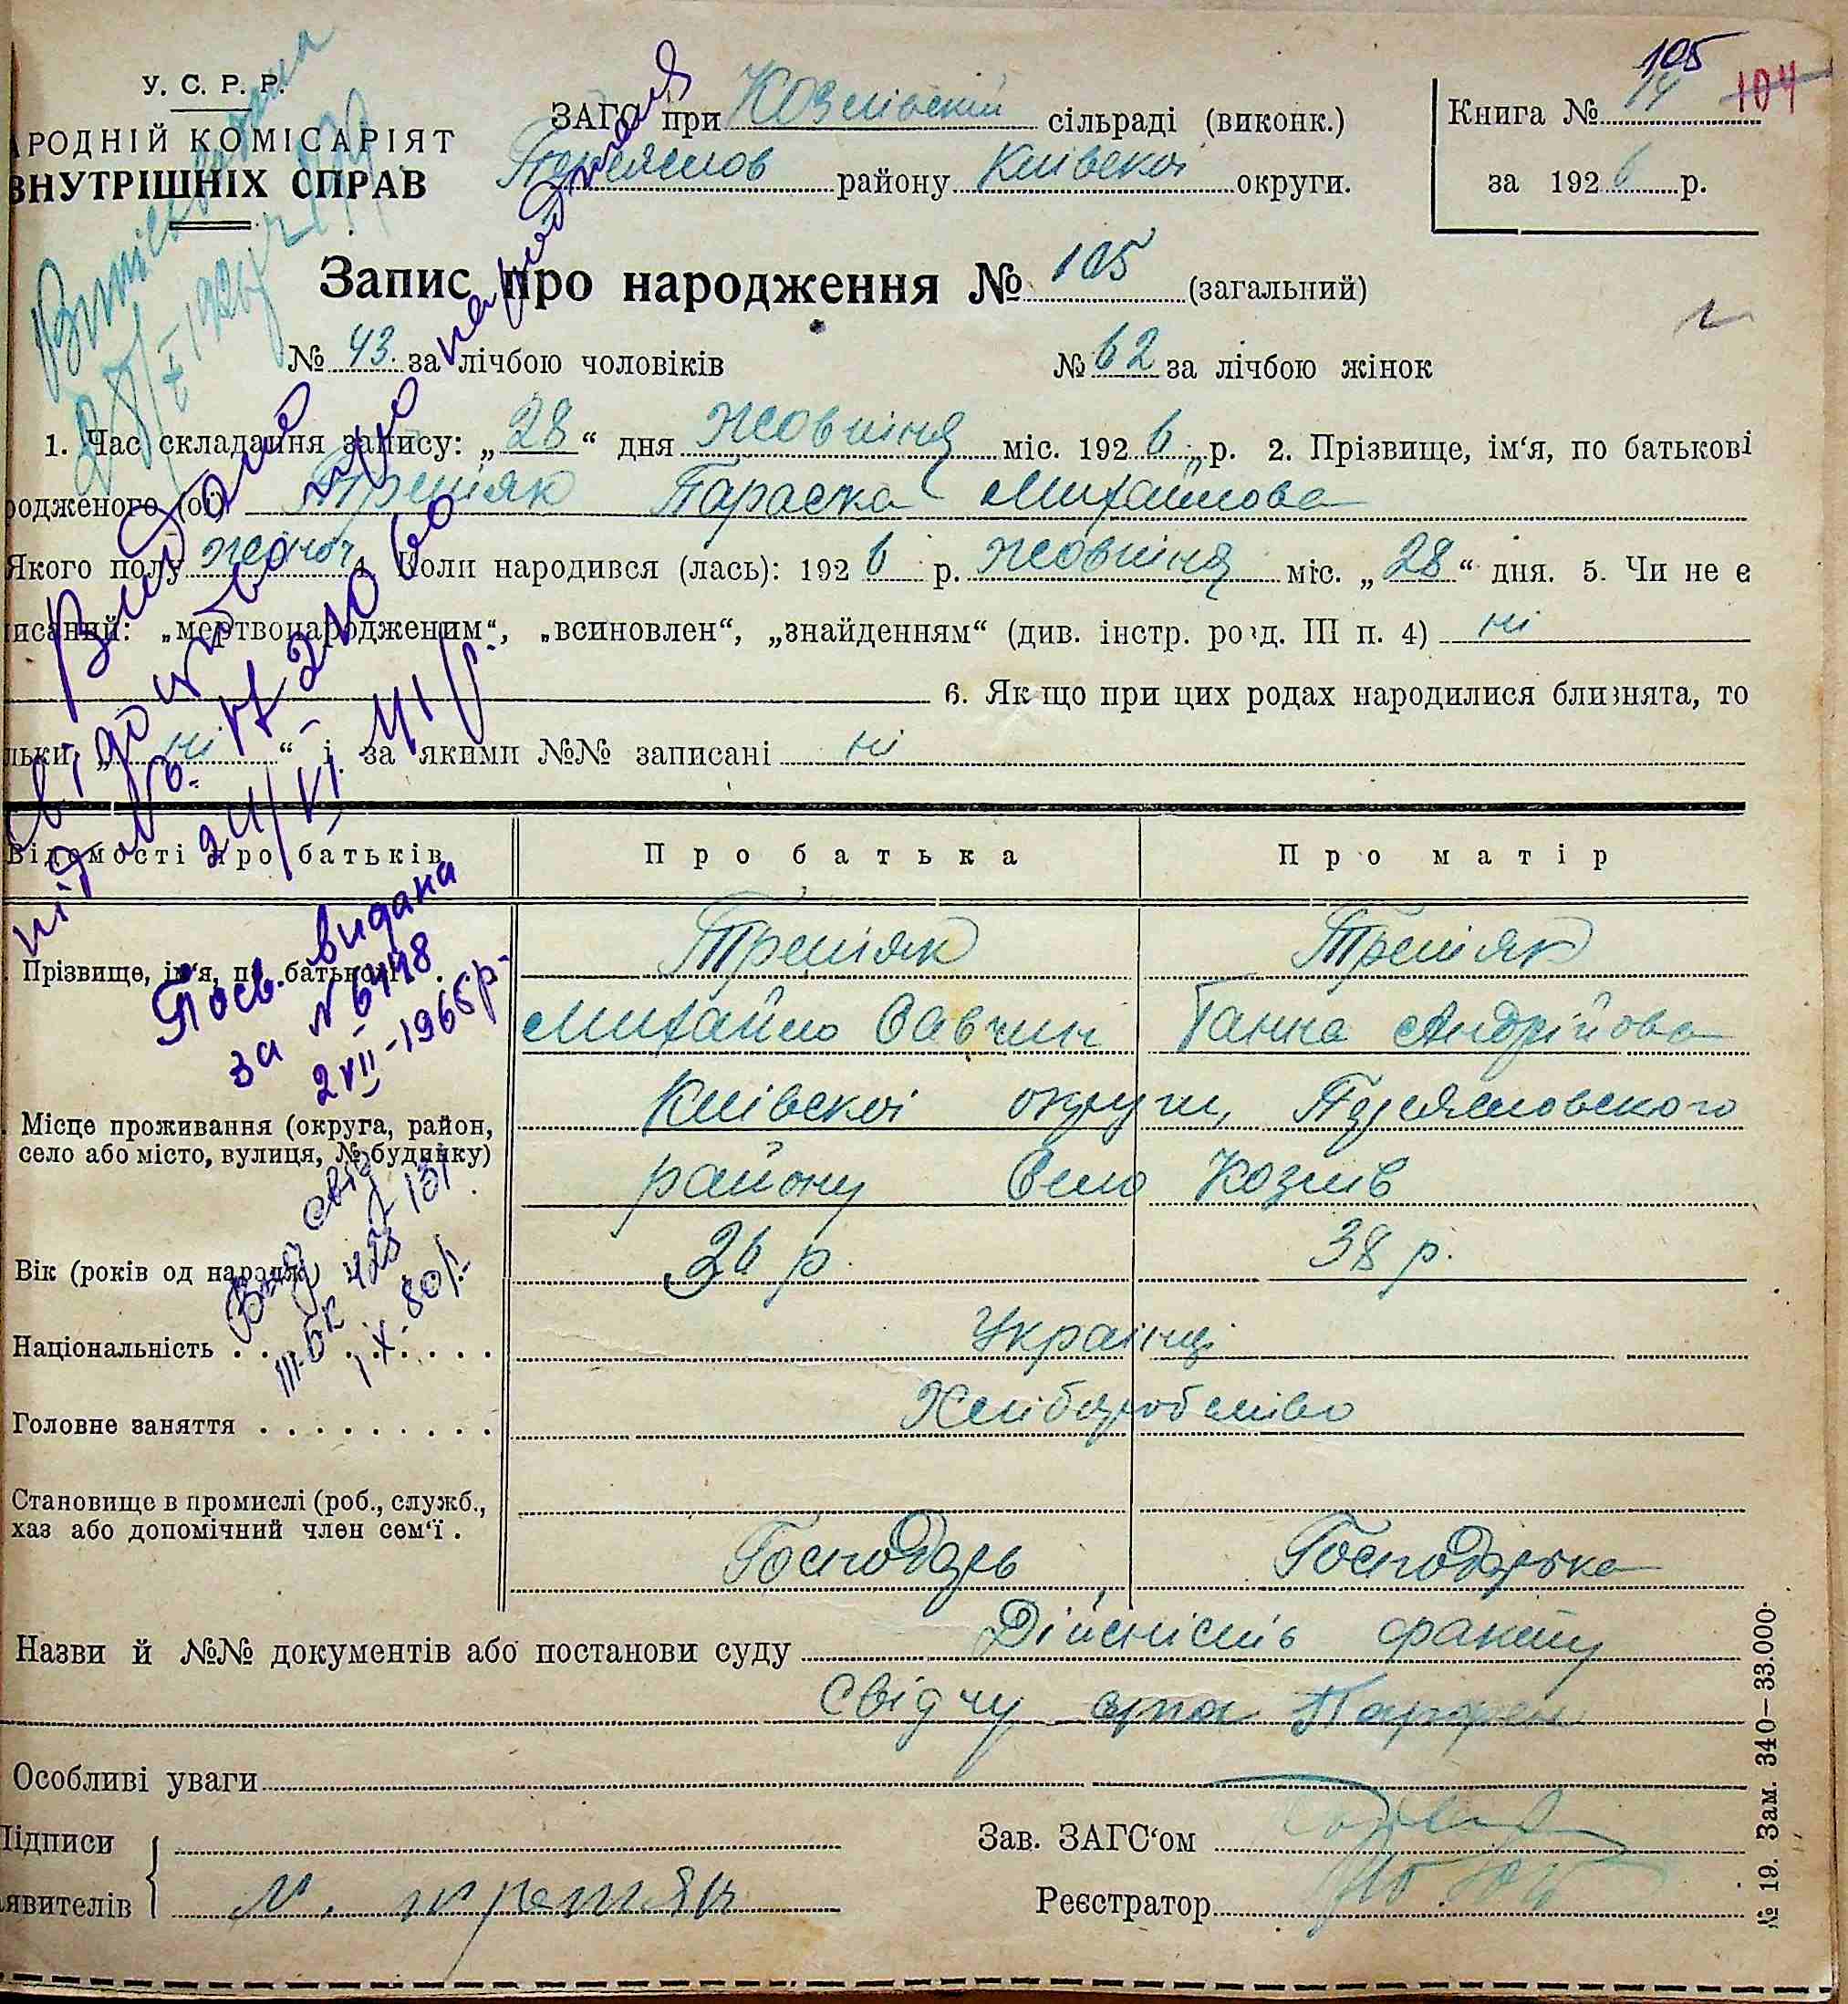 105
104
У. С. Р. Р.
АРОДНІЙ КОМІСАРІЯТ
ВНУТРІШНІХ СПРАВ
ЗАГС при Козлівскій сільраді (виконк.)
Переяслов району Київскої округи.
Книга № 14
за 1926 р.
Запис про народження № 105 (загальний)
№ 43. за лічбою чоловіків
№ 62 за лічбою жінок
1. Час складання запису: „28“ дня Жовтня міс. 1926 р. 2. Прізвище, ім‘я, по батькові
родженого (ої) Третяк Параска Михайлова
Якого полу жіноч 4. Коли народився (лась): 1926 р. Жовтня міс. „28“ дня. 5. Чи не є
писаний: „мертвонародженим“, „всиновлен“, „знайденням“ (див. інстр. розд. III п. 4) ні
6. Як що при цих родах народилися близнята, то
льки „ні“ і за якими №№ записані ні
Відомості про батьків
Про батька
Про матір
Прізвище, ім‘я, по батькові
Третяк
Третяк
Михайло Савчин
Ганна Андрійова
Місце проживання (округа, район, село або місто, вулиця, № будинку)
Київскої округи, Переясловского
району Село Козлів
Вік (років од народж.)
26 р.
38 р.
Національність
Українці
Головне заняття
Хліборобство
Становище в промислі (роб., служб., хаз або допомічний член сем‘ї .
Господарь
Господарька
Назви й №№ документів або постанови суду Дійсність факту
Свідчу
Особливі уваги
Підписи
аявителів
М. Третяк
Зав. ЗАГС‘ом
Реєстратор
№ 19. Зам. 340—33.000.
Видано
свідоцтво
під №
24/VI
Посв. видана
за № 6448
2 VII-1965р.
Вид свід
III-БК 428 131
1 X-80р.